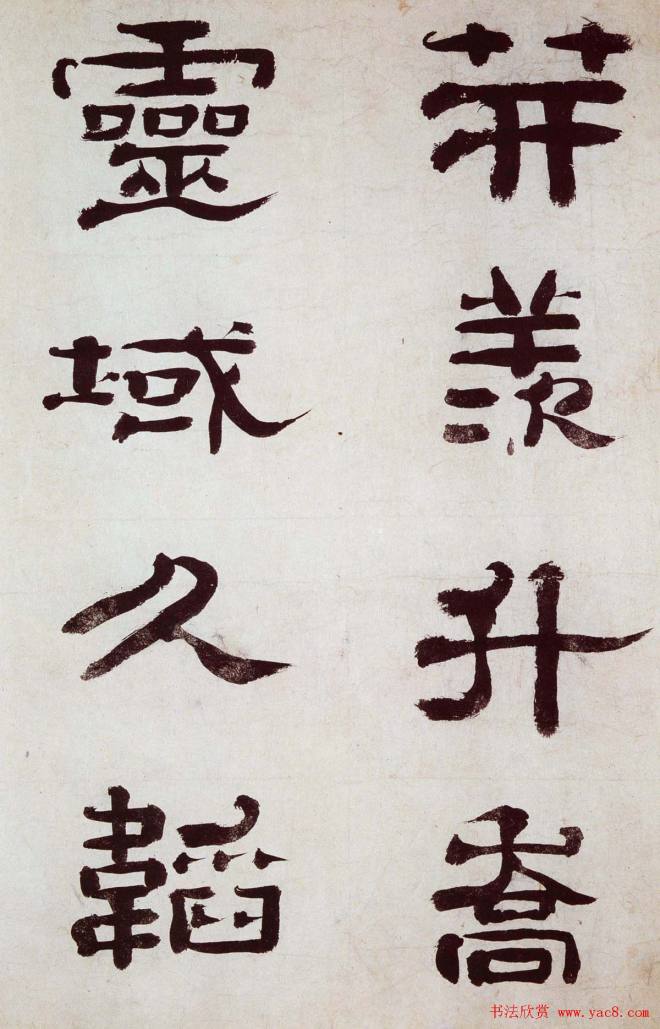 羨升喬
靈域久韜
书法欣赏 www.yac8.com